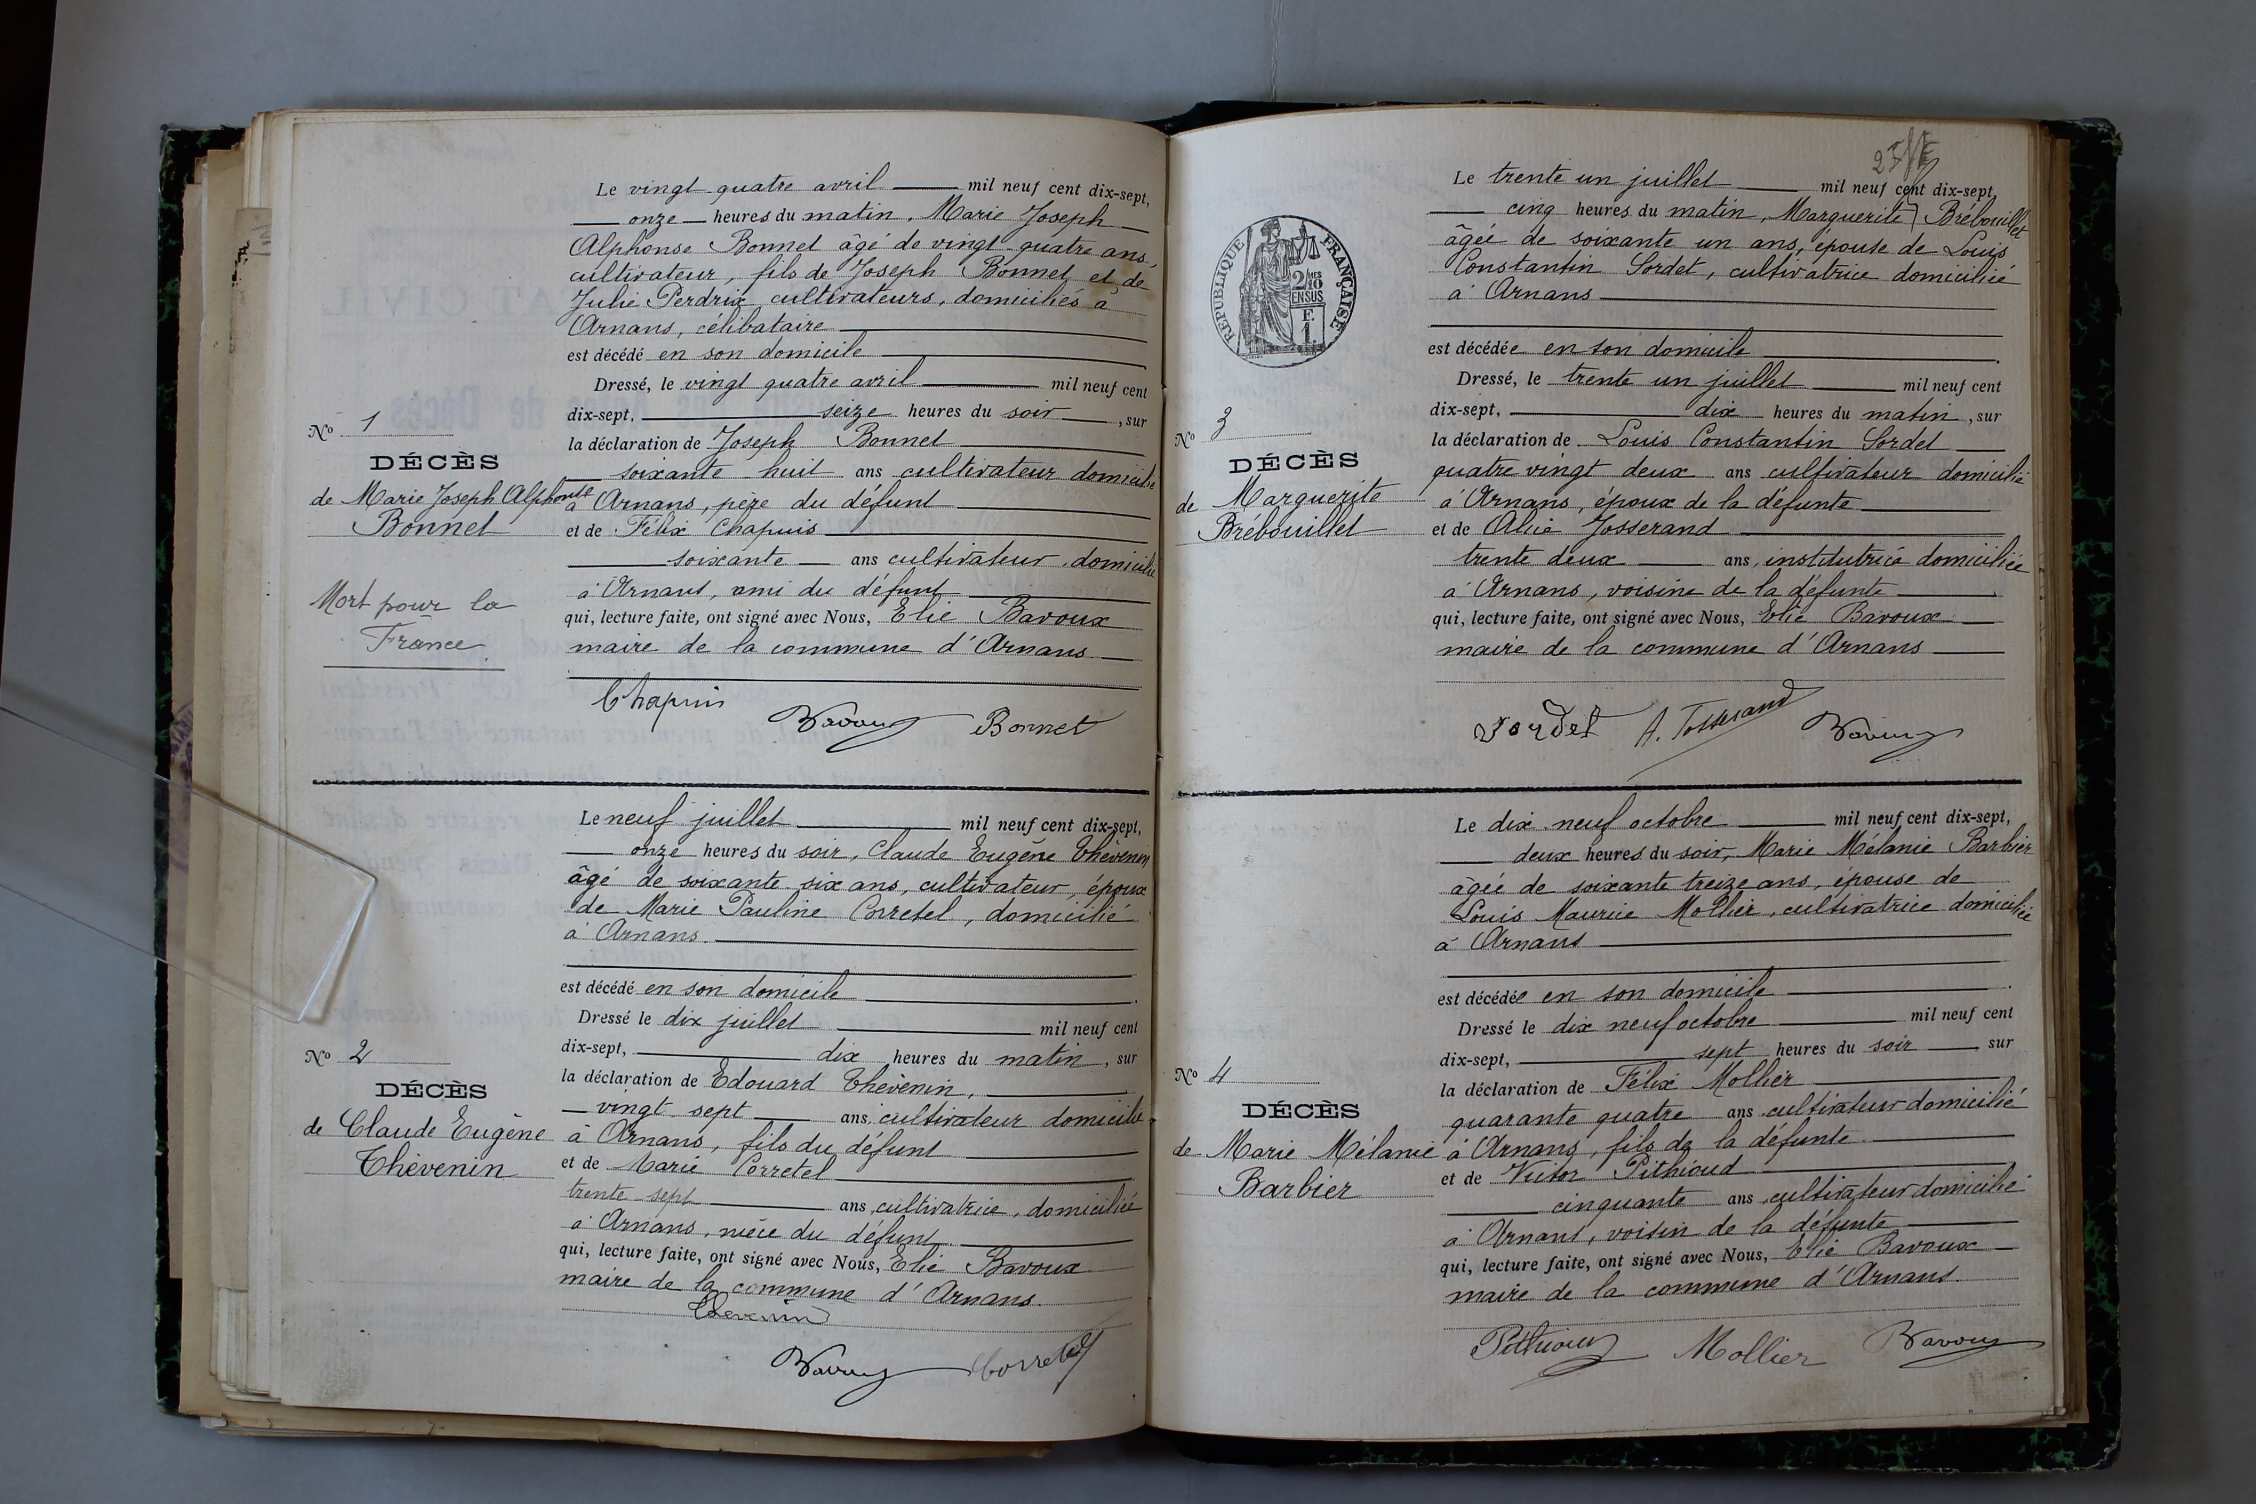 Le vingt quatre avril mil neuf cent dix-sept,
onze heures du matin, Marie Joseph
Alphonse Bonnet âgé de vingt-quatre ans,
cultivateur, fils de Joseph Bonnet et de
Julie Perdrix, cultivateurs, domiciliés à
Arnans, célibataire
est décédé en son domicile
Dressé, le vingt quatre avril mil neuf cent
dix-sept, seize heures du soir, sur
la déclaration de Joseph Bonnet
soixante huit ans cultivateur domicilié
à Arnans, père du défunt
et de Félix Chapuis
soixante ans cultivateur domicilié
à Arnans, ami du défunt
qui, lecture faite, ont signé avec Nous, Elie Bavoux
maire de la commune d'Arnans
Chapuis Bavoux Bonnet
No 1
DÉCÈS
de Marie Joseph Alphonse
Bonnet
Mort pour la
France
Le neuf juillet mil neuf cent dix-sept,
onze heures du soir, Claude Eugène Thévenin
âgé de soixante six ans, cultivateur, époux
de Marie Pauline Corretel, domicilié
à Arnans.
est décédé en son domicile
Dressé le dix juillet mil neuf cent
dix-sept, dix heures du matin, sur
la déclaration de Edouard Thévenin,
vingt sept ans, cultivateur domicilié
à Arnans, fils du défunt
et de Marie Corretel
trente sept ans, cultivatrice, domiciliée
à Arnans, nièce du défunt
qui, lecture faite, ont signé avec Nous, Elie Bavoux
maire de la commune d'Arnans.
Thevenin
Bavoux Corretel
No 2
DÉCÈS
de Claude Eugène
Thévenin
RÉPUBLIQUE FRANÇAISE
2/10 EN SUS
E.
1
Le trente un juillet mil neuf cent dix-sept,
cinq heures du matin, Marguerite Brébouillet
âgée de soixante un ans, épouse de Louis
Constantin Sordet, cultivatrice domiciliée
à Arnans
est décédée en son domicile
Dressé, le trente un juillet mil neuf cent
dix-sept, dix heures du matin, sur
la déclaration de Louis Constantin Sordet
quatre vingt deux ans cultivateur domicilié
à Arnans, époux de la défunte
et de Alice Josserand
trente deux ans, institutrice domiciliée
à Arnans, voisine de la défunte
qui, lecture faite, ont signé avec Nous, Elie Bavoux
maire de la commune d'Arnans
Sordet A. Josserand Bavoux
No 3
DÉCÈS
de Marguerite
Brébouillet
Le dix neuf octobre mil neuf cent dix-sept,
deux heures du soir, Marie Mélanie Barbier
âgée de soixante treize ans, épouse de
Louis Maurice Mollier, cultivatrice domiciliée
à Arnans
est décédée en son domicile
Dressé le dix neuf octobre mil neuf cent
dix-sept, sept heures du soir sur
la déclaration de Félix Mollier
quarante quatre ans cultivateur domicilié
à Arnans, fils de la défunte
et de Victor Pithioud
cinquante ans cultivateur domicilié
à Arnans, voisin de la défunte
qui, lecture faite, ont signé avec Nous, Elie Bavoux
maire de la commune d'Arnans.
Pithioud Mollier Bavoux
No 4
DÉCÈS
de Marie Mélanie
Barbier